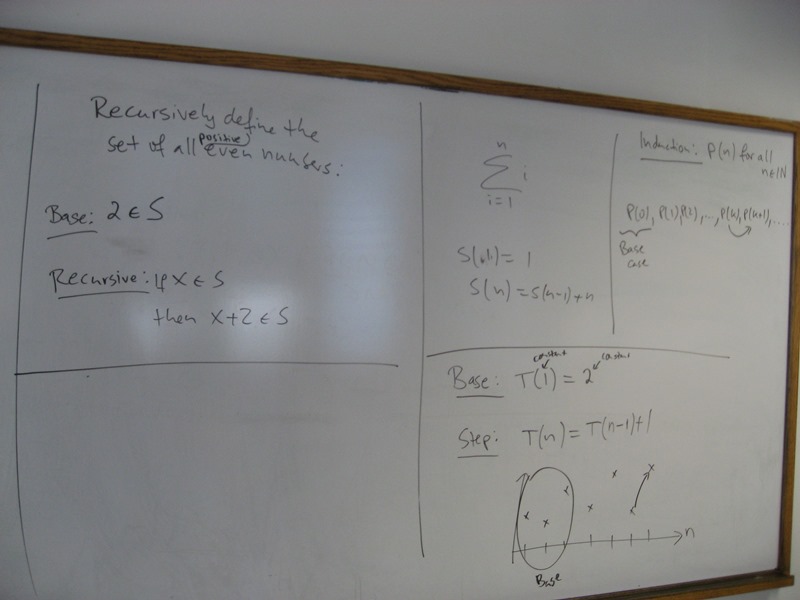 Recursively define the
positive
set of all even numbers:
Base: 2 ∈ S
Recursive: if x ∈ S
then x+2 ∈ S
n
∑ i
i=1
S(1) = 1
S(n) = S(n-1)+n
Induction: P(n) for all
n∈ℕ
P(0), P(1), P(2), ..., P(k), P(k+1), ....
Base
case
constant constant
Base: T(1) = 2
Step: T(n) = T(n-1)+1
n
Base